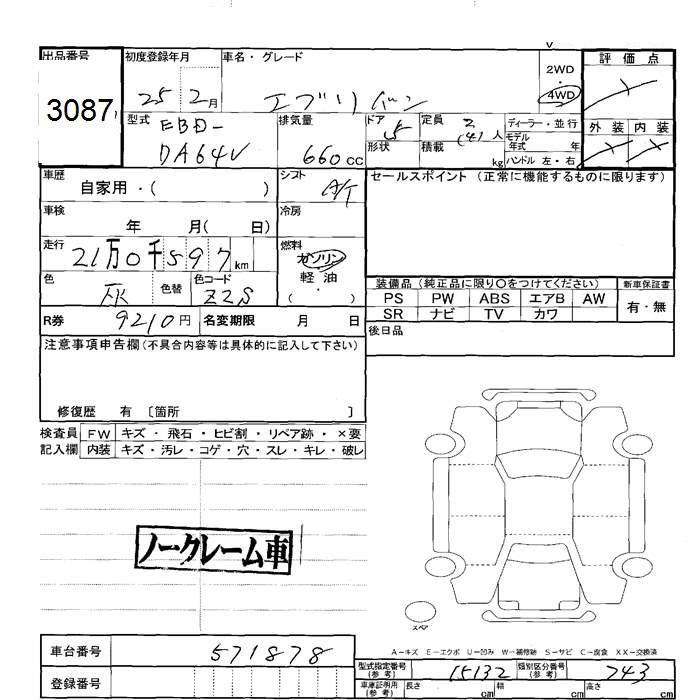 出品番号
3087
初度登録年月
25 2月
車名・グレード
エブリ バン
2WD
4WD
評価点
外装 内装
型式 EBD-
DA64V
排気量
660 cc
ドア 5
形状
定員 2
(4) 人
積載
kg
ディーラー・並行
モデル
年式 年
ハンドル 左・右
車歴
自家用・( )
シフト
A/T
セールスポイント (正常に機能するものに限ります)
車検
年 月( 日)
冷房
走行
21万0千597 km
燃料
ガソリン
軽・油
( ・ )
色
灰
色替
色コード
Z2S
装備品 (純正品に限り〇をつけてください)
新車保証書
PS PW ABS エアB AW
SR ナビ TV カワ
有・無
R券 9210円
名変期限 月 日
後日品
注意事項申告欄(不具合内容等は具体的に記入して下さい)
修復歴 有 〔箇所 〕
検査員
記入欄
FW キズ・飛石・ヒビ割・リペア跡・×要
内装 キズ・汚レ・コゲ・穴・スレ・キレ・破レ
ノークレーム車
スペア
A−キズ E−エクボ U−凹み W−補修跡 S−サビ C−腐食 XX−交換済
車台番号 571878
登録番号
型式指定番号
(参考)
15132
類別区分番号
(参考)
743
車庫証明用
(参考)
長さ cm
幅 cm
高さ cm